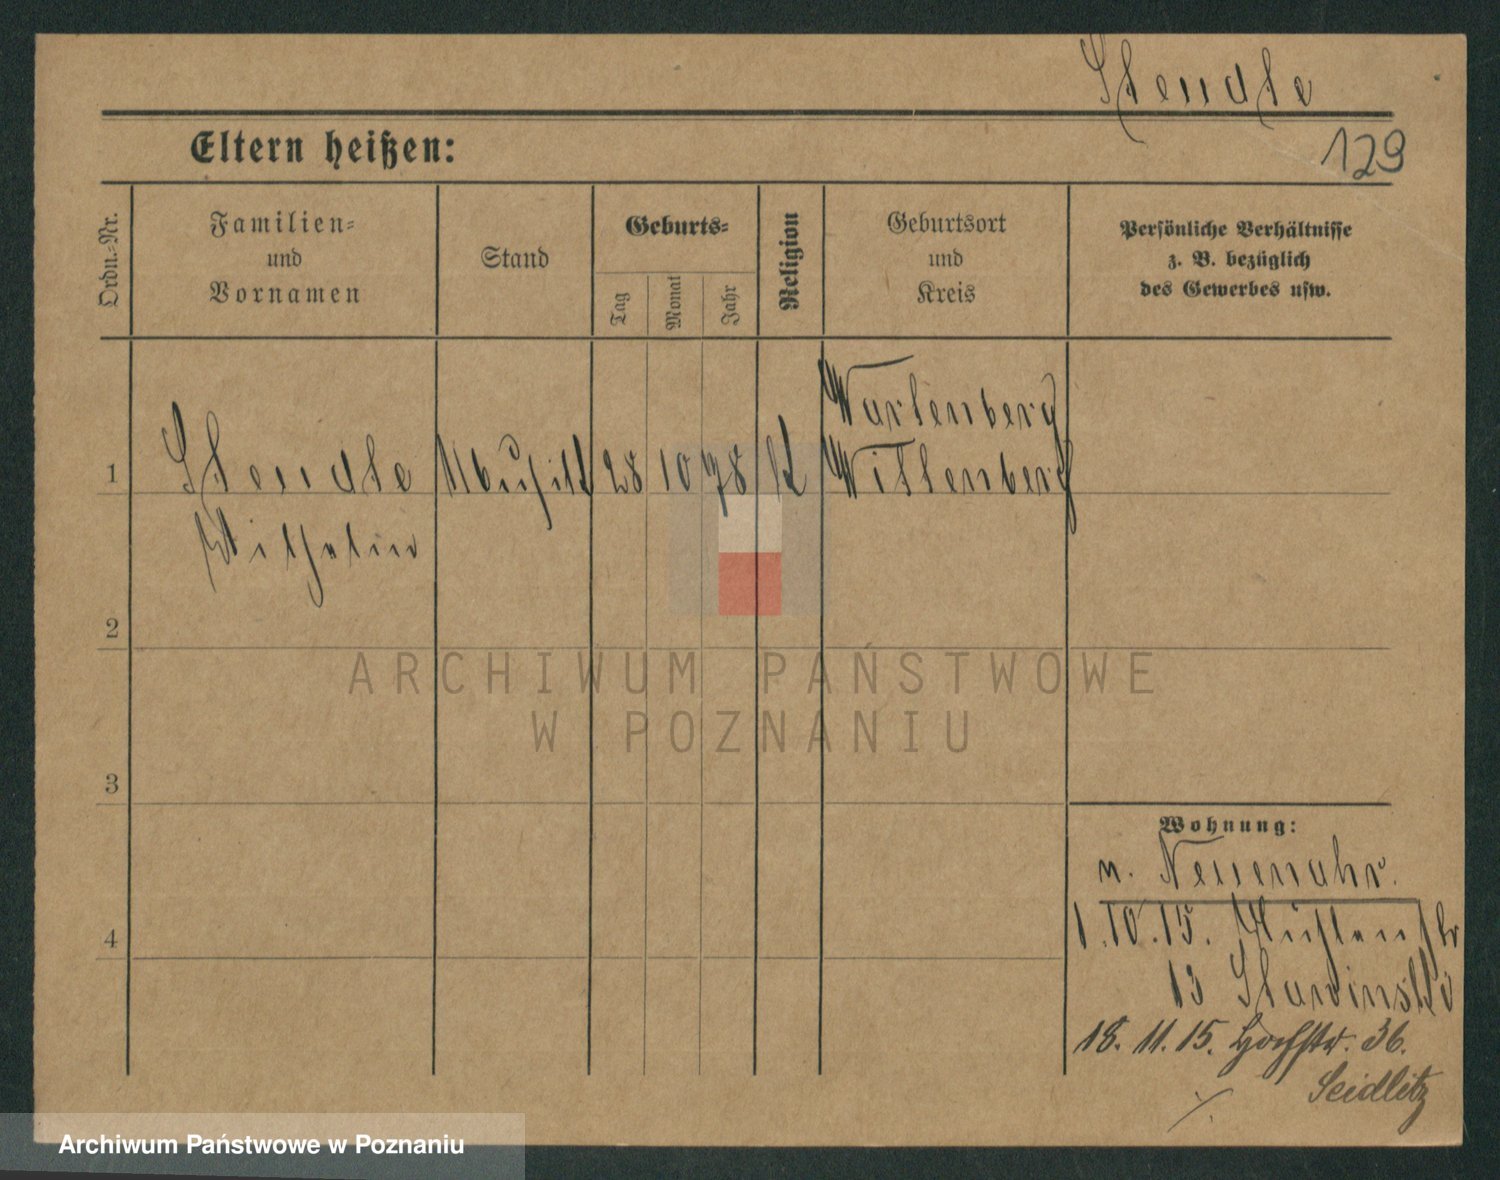 Stendte
129
Eltern heißen:
Ordn.-Nr.
Familien-
und
Vornamen
Stand
Geburts-
Tag
Monat
Jahr
Religion
Geburtsort
und
Kreis
Persönliche Verhältnisse
z. B. bezüglich
des Gewerbes usw.
Wartenberg
1 Stendte 28 10 78 K Wittenberg
Wilhelm
2
3
4
Wohnung:
n. Neuenahr.
1.10.15. Mühlenstr
13 Slawinski
18. 11. 15. Hochstr. 36.
Seidlitz
ARCHIWUM PAŃSTWOWE
W POZNANIU
Archiwum Państwowe w Poznaniu